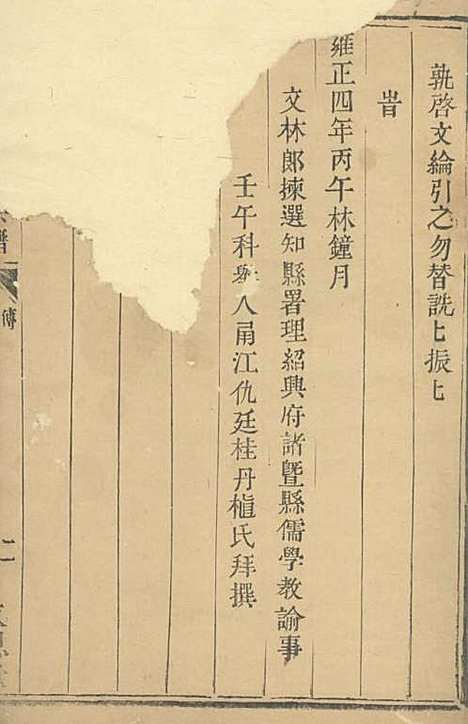 孰啓文綸引之勿替詵匕振匕
旹
雍正四年丙午林鐘月
文林郎揀選知縣署理紹興府諸曁縣儒學教諭事
壬午科舉人甬江仇廷桂丹植氏拜撰
譜
傳
二